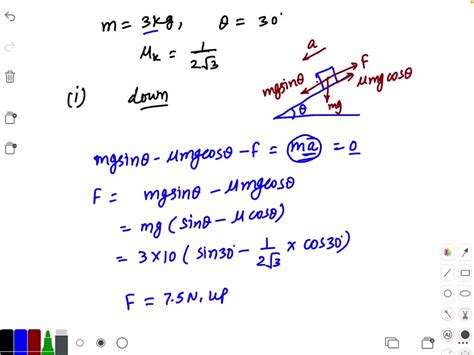 m = 3kg, θ = 30°
μk = 1/2√3
(i) down
a
F
mgsinθ
μmgcosθ
mg
θ
mgsinθ - μmgcosθ - F = ma = 0
F = mgsinθ - μmgcosθ
= mg (sinθ - μcosθ)
= 3×10 (sin30° - 1/2√3 × cos30°)
F = 7.5N, up